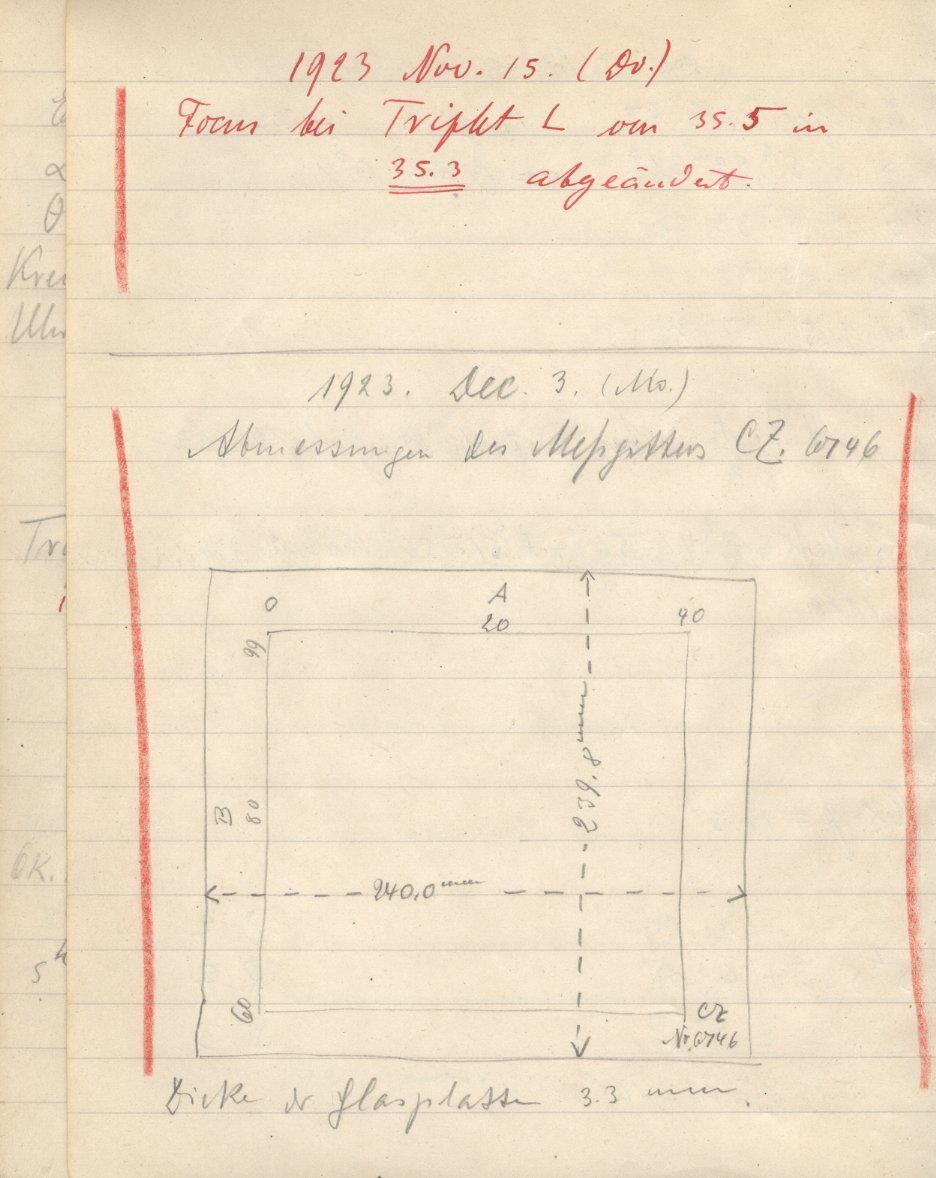 1923 Nov. 15. (Do.)
Focus bei Triplet L von 35.5 in
35.3 abgeändert.
1923. Dec. 3. (Mo.)
Abmessungen des Meßgitters CZ. 6746
0
A
20
40
99
B
80
239.8 mm
240,0 mm
60
CZ
Nr. 6746
Dicke der Glasplatte 3.3 mm.
Krei
Uhr
Tri
OK.